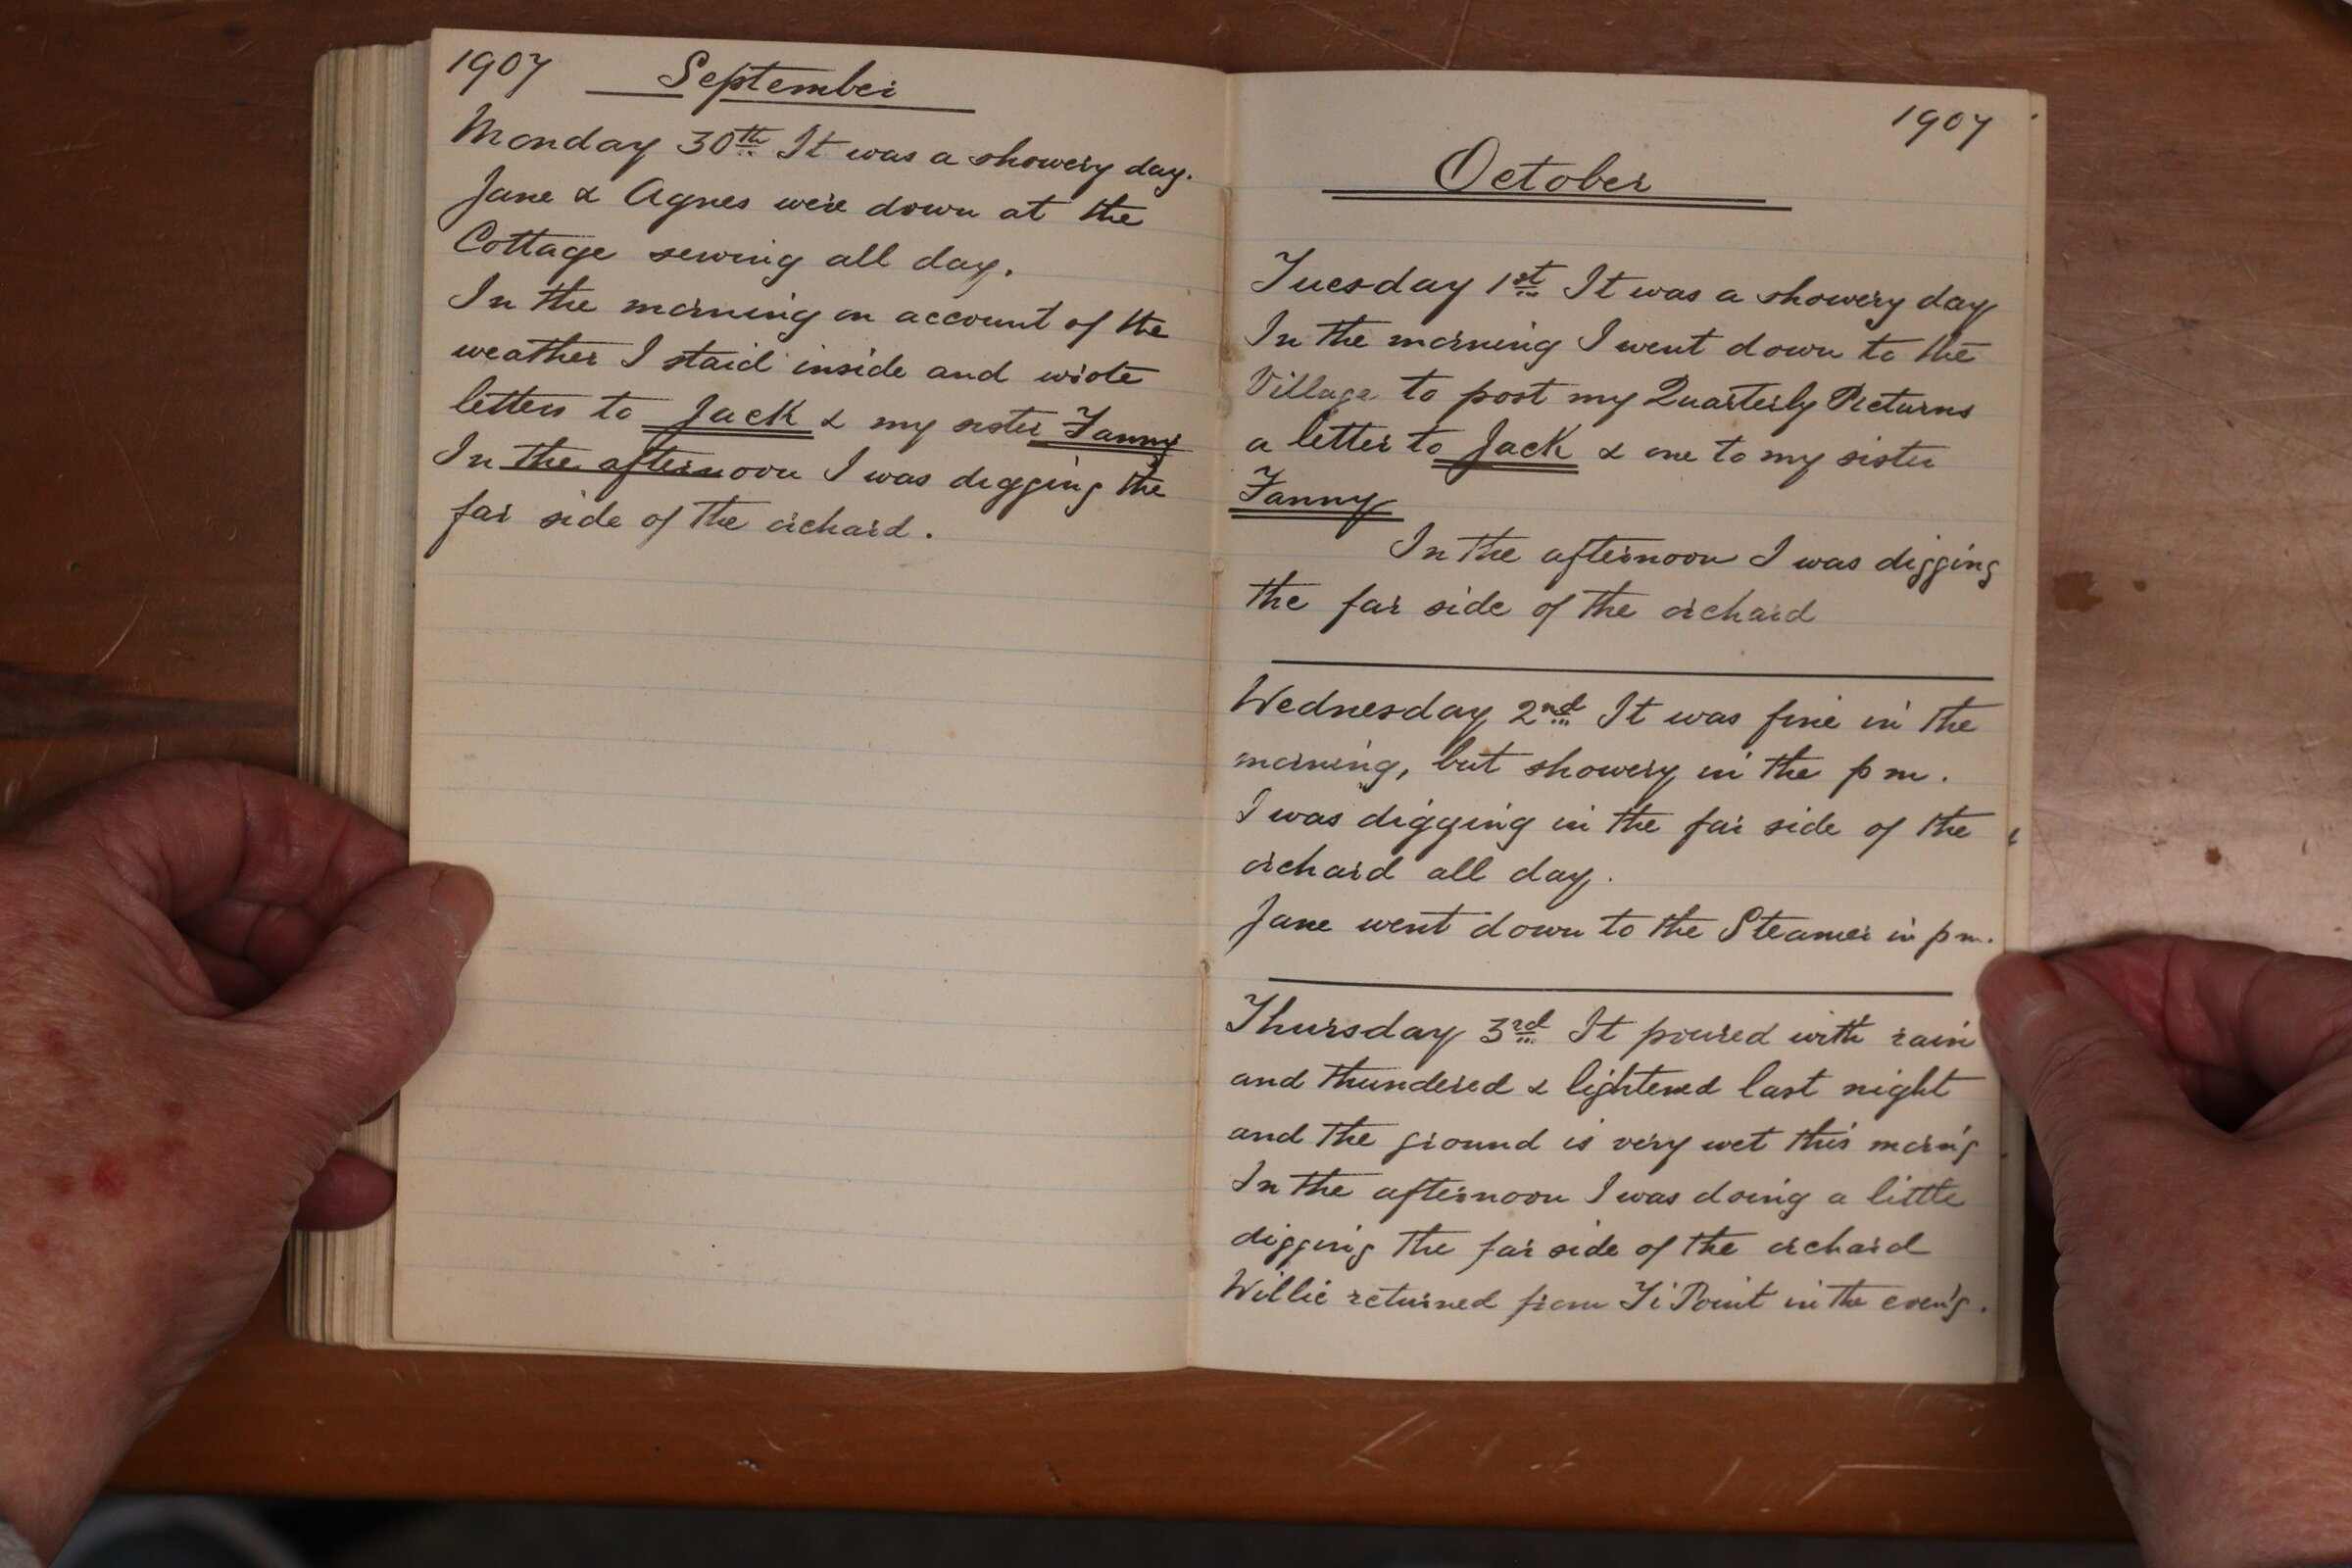 1907 September
Monday 30th It was a showery day.
Jane & Agnes were down at the
Cottage sewing all day.
In the morning on account of the
weather I staid inside and wrote
letters to Jack & my sister Fanny
In the afternoon I was digging the
far side of the orchard.
1907
October
Tuesday 1st It was a showery day
In the morning I went down to the
Village to post my Quarterly Returns
a letter to Jack & one to my sister
Fanny
In the afternoon I was digging
the far side of the orchard
Wednesday 2nd It was fine in the
morning, but showery in the pm.
I was digging in the far side of the
orchard all day.
Jane went down to the Steamer in pm.
Thursday 3rd It poured with rain
and thundered & lightened last night
and the ground is very wet this morn'g
In the afternoon I was doing a little
digging the far side of the orchard
Willie returned from Ti Point in the even'g.